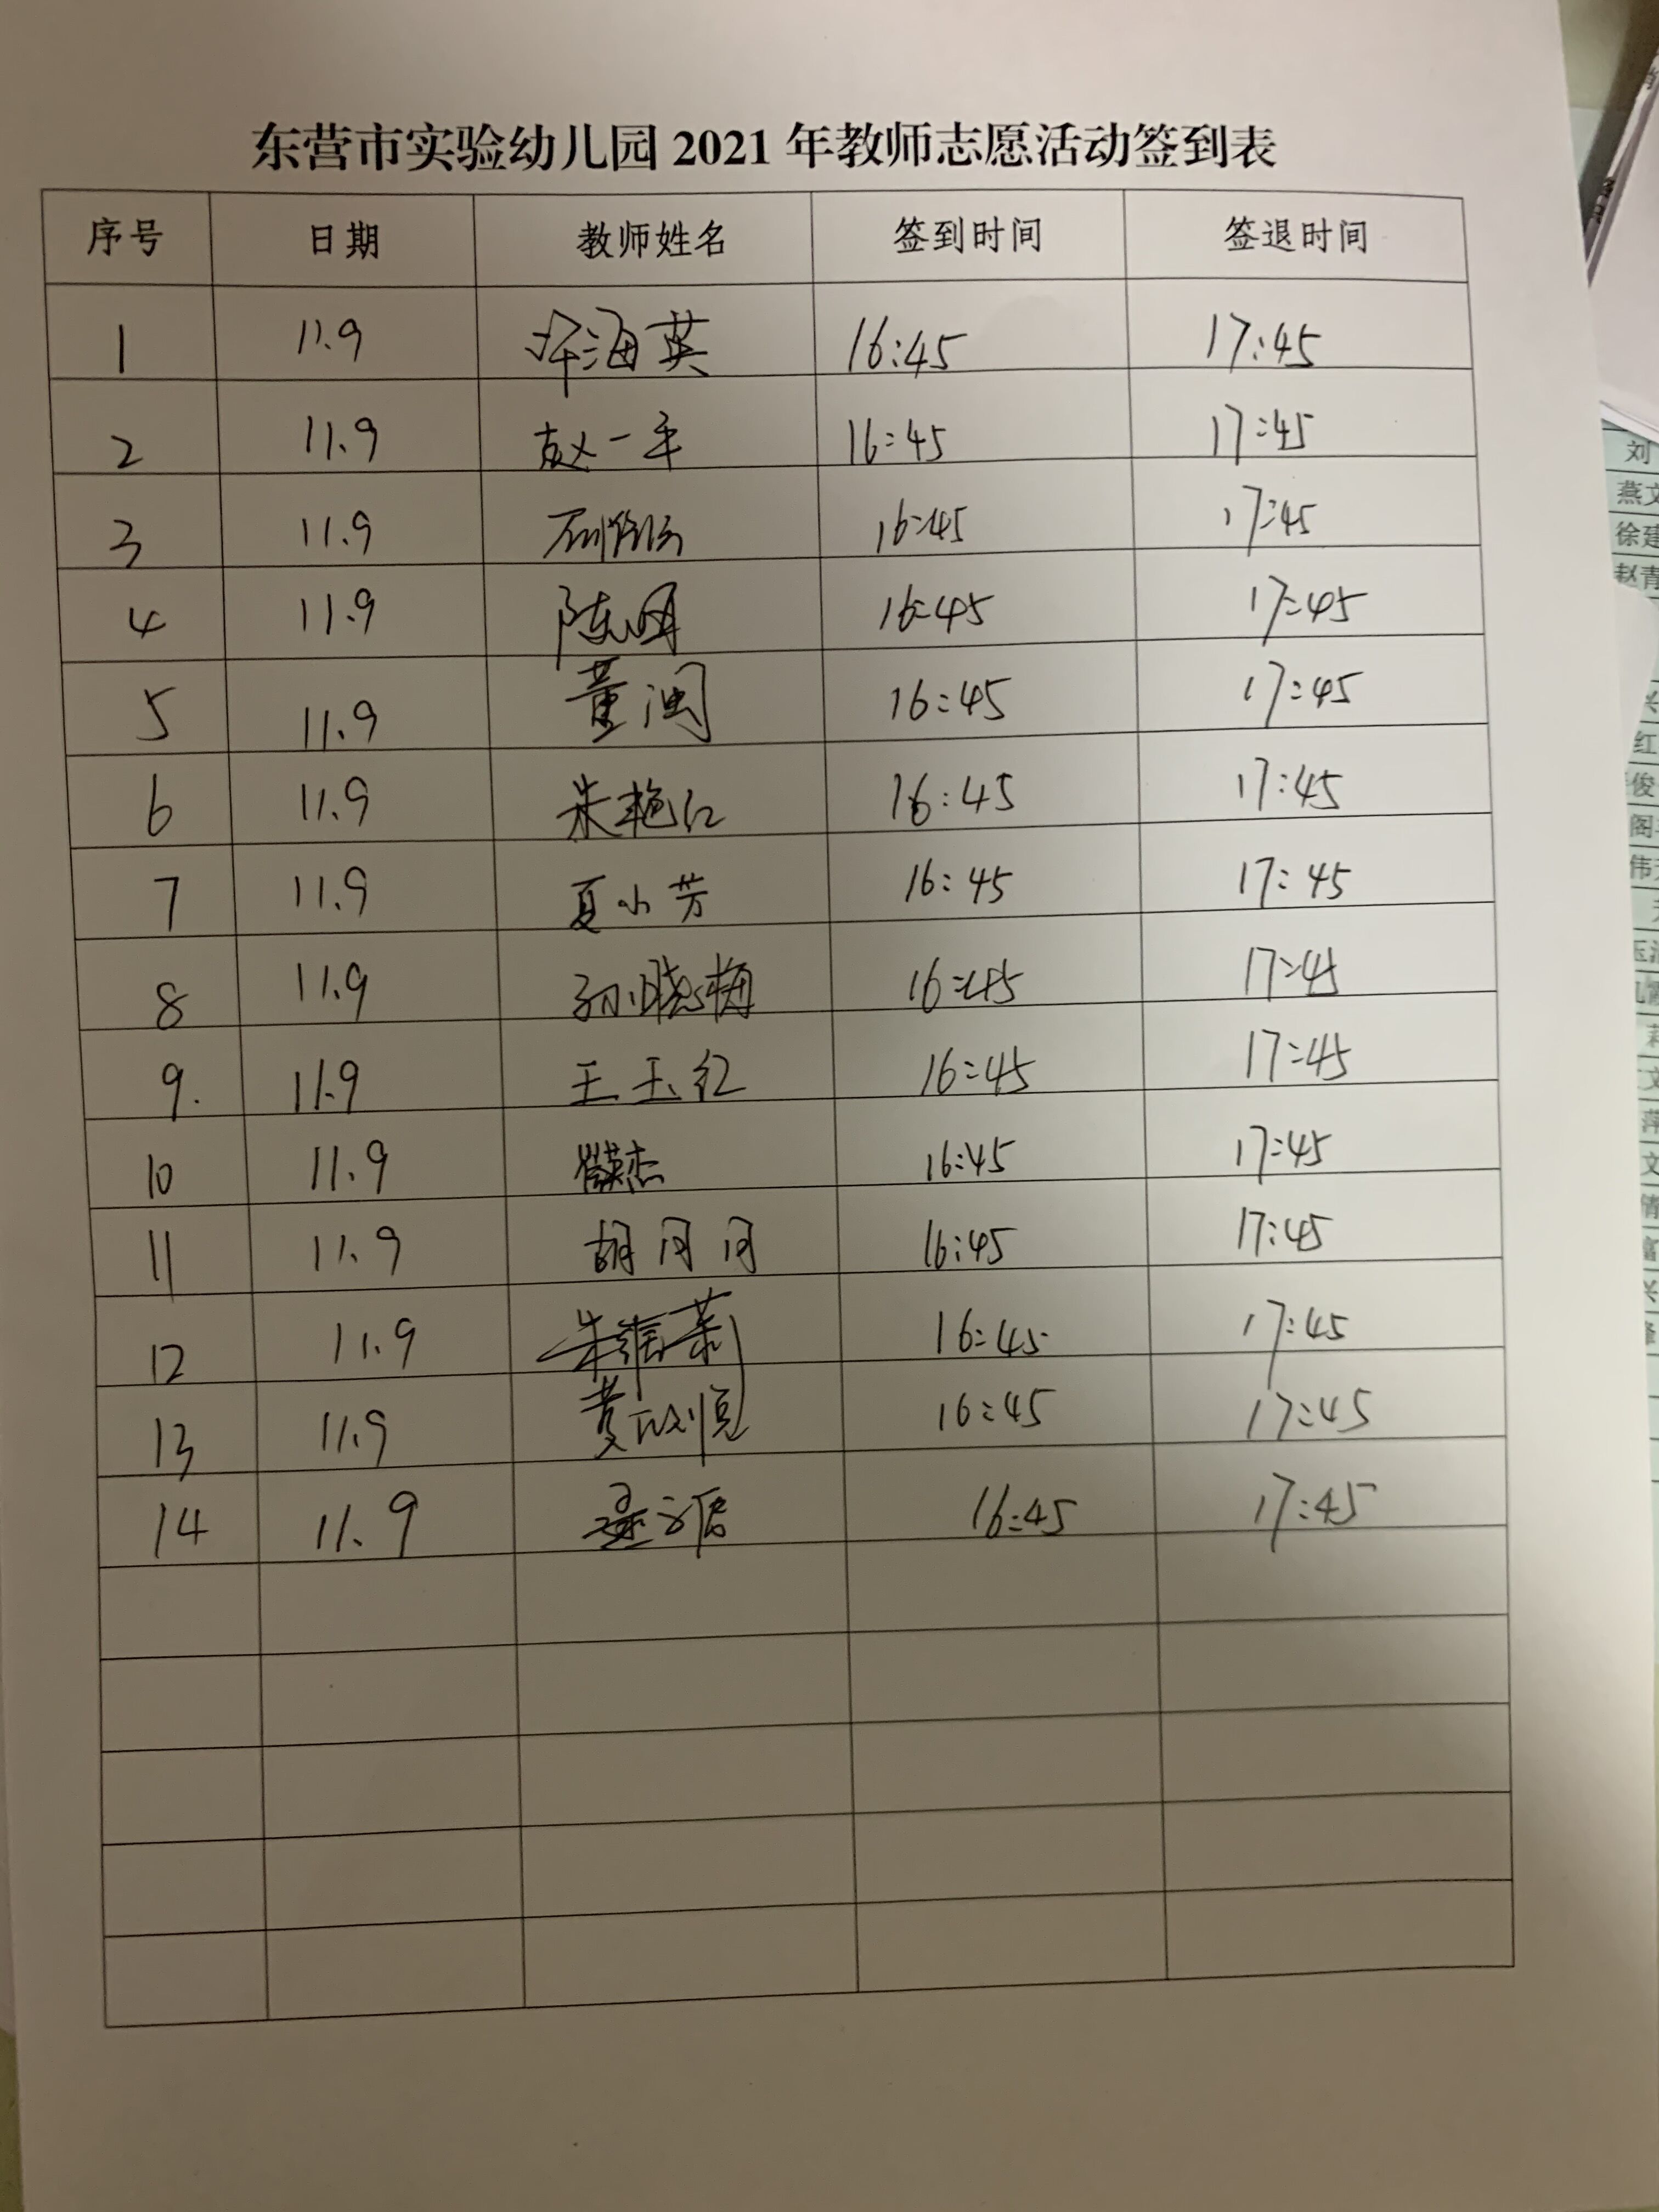 东营市实验幼儿园 2021 年教师志愿活动签到表
序号 日期 教师姓名 签到时间 签退时间
1 11.9 海英 16:45 17:45
2 11.9 赵一平 16:45 17:45
3 11.9 16:45 17:45
4 11.9 陈明 16:45 17:45
5 11.9 董闽 16:45 17:45
6 11.9 朱艳红 16:45 17:45
7 11.9 夏小芳 16:45 17:45
8 11.9 孙晓梅 16:45 17:45
9. 11.9 王玉红 16:45 17:45
10 11.9 英杰 16:45 17:45
11 11.9 胡月月 16:45 17:45
12 11.9 朱 莉 16:45 17:45
13 11.9 黄 16:45 17:45
14 11.9 16:45 17:45
刘
燕文
徐建
赵青
红
俊
阁
伟
文
萍
文
倩